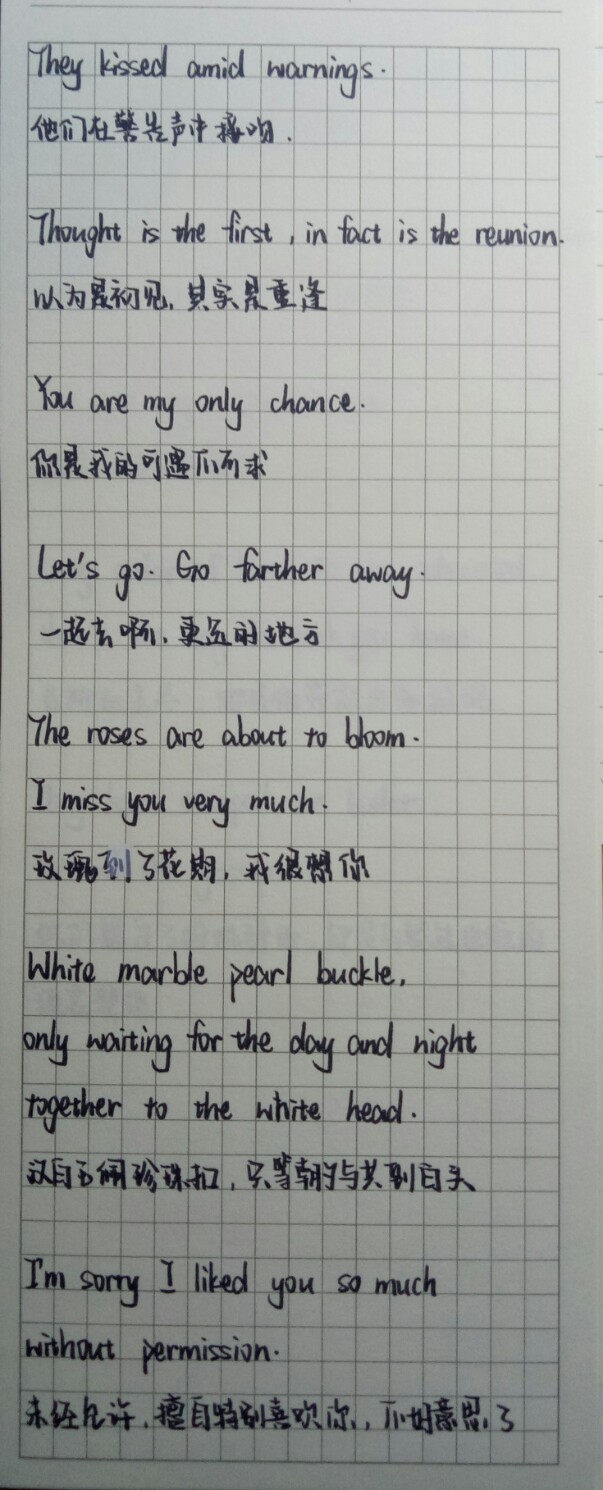 They kissed amid warnings.
他们在警告声中接吻.
Thought is the first, in fact is the reunion.
以为是初见, 其实是重逢
You are my only chance.
你是我的可遇不可求
Let's go. Go farther away.
一起去啊, 更远的地方
The roses are about to bloom.
I miss you very much.
玫瑰到了花期, 我很想你
White marble pearl buckle,
only waiting for the day and night
together to the white head.
汉白玉佩珍珠扣, 只等朝夕与共到白头
I'm sorry I liked you so much
without permission.
未经允许, 擅自特别喜欢你, 不好意思了